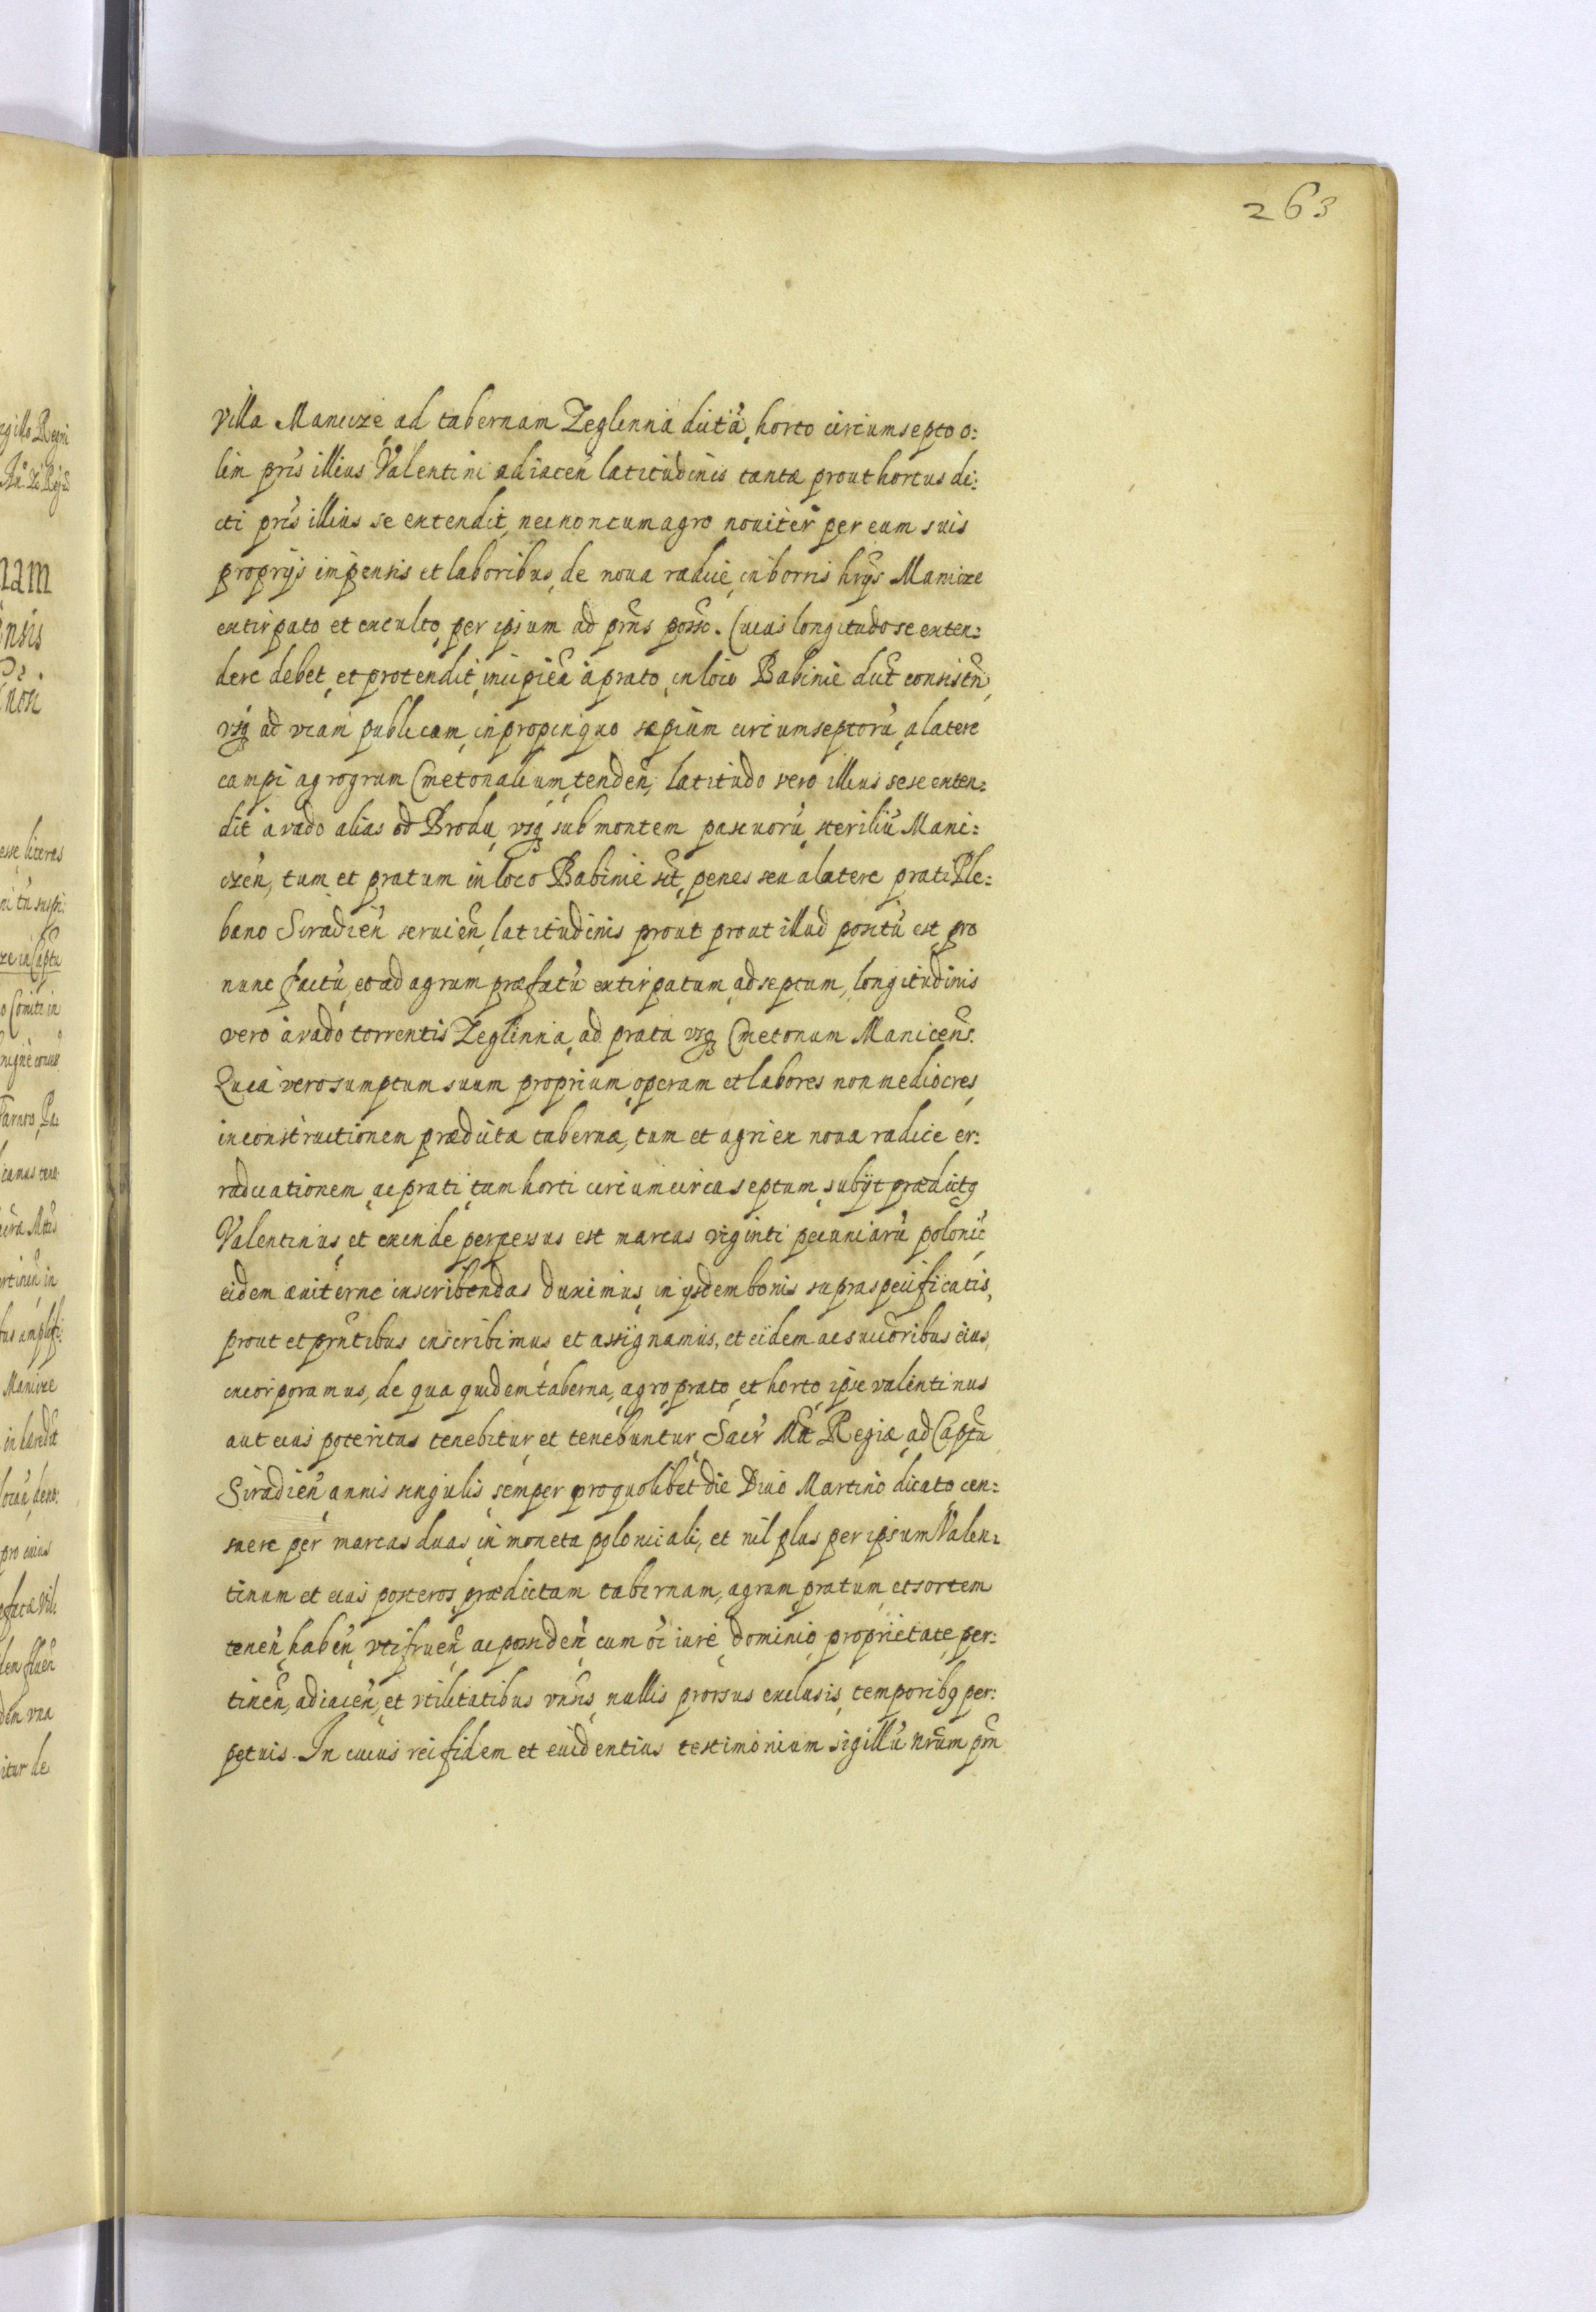 263
villa Manicze, ad tabernam Zeglinnia dictã, horto circumsepto o:
lim pris illius Valentini adiaceñ latitudinis tantæ prout hortus di:
cti pris illius se extendit, nec non cum agro nouiter per eum suis
proprijs impensis et laboribus, de noua radice, in borris hrijs Manicze
extirpato et exculto, per ipsum ad prñs posse. Cuius longitudo se exten:
dere debet, et protendit, incipieñ à prato, in loco Babinie dict consisteñ,
vsq ad viam publicam, in propinquo sæpium circumseptorũ, a latere
campi agrogrum Cmetonalium, tendeñ, latitudo vero illius sese exten:
dit à vado alias od Brodu, vsq sub montem pascuorũ, steriliũ Mani:
czeñ, tum et pratum in loco Babinie sit, penes seu a latere prati Ple:
bano Siradieñ seruieñ, latitudinis prout prout illud positũ est, pro
nunc factũ, et ad agrum præfatũ extirpatum, adseptum, longitudinis
vero à vado torrentis Zeglinnia, ad prata vsq Cmetonum Maniceñs.
Quia vero sumptum suum proprium, operam et labores non mediocres,
in constructionem prædictæ tabernæ, tum et agri ex noua radice er:
radicationem, ac prati, tum horti circumcirca septum, subijt prædictg
Valentinus, et exinde perpessus est marcas viginti pecuniarũ polonic,
eidem æuiterne inscribendas duximus, in ijsdem bonis supraspecificatis,
prout et prñtibus inscribimus et assignamus, et eidem ac succoribus eius,
incorporamus, de qua quidem taberna, agro, prato, et horto, ipse valentinus
aut eius posteritas tenebitur, et tenebuntur, Sacr Mti Regiæ, ad Captũ
Siradieñ, annis singulis, semper pro quolibet die Diuo Martino dicato, cen:
suere per marcas duas, in moneta polonicali, et nil plus per ipsum Valen:
tinum et eius posteros, prædictam tabernam, agrum, pratum, et sortem
teneñ, habeñ, vtifrueñ, ac possideñ, cum oi iure, dominio, proprietate, per:
tineñ, adiaceñ, et vtilitatibus vnsis, nullis prorsus exclusis, temporibg per:
petuis. In cuius rei fidem et euidentius testimonium sigillũ nrum prñ